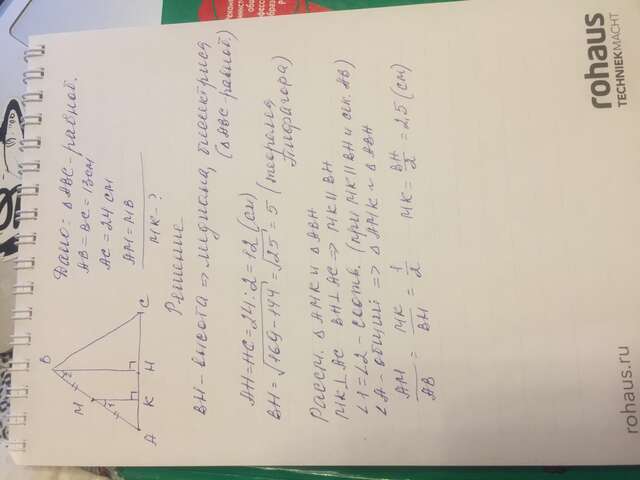 B
M
2
1
A
K
H
C
Дано: △ABC - равноб.
AB = BC = 13 см
AC = 24 см
AM = MB
MK - ?
Решение
BH - высота ⇒ медиана, биссектриса
(△ABC - равноб.)
AH = HC = 24 : 2 = 12 (см)
BH = √169 - 144 = √25 = 5 (теорема
Пифагора)
Рассм. △AMK и △ABH
MK ⊥ AC BH ⊥ AC ⇒ MK ∥ BH
∠1 = ∠2 - соотв. (при MK ∥ BH и сек. AB)
∠A - общий ⇒ △AMK ~ △ABH
AM/AB = MK/BH = 1/2 MK = BH/2 = 2,5 (см)
rohaus
TECHNIEKMACHT
rohaus.ru